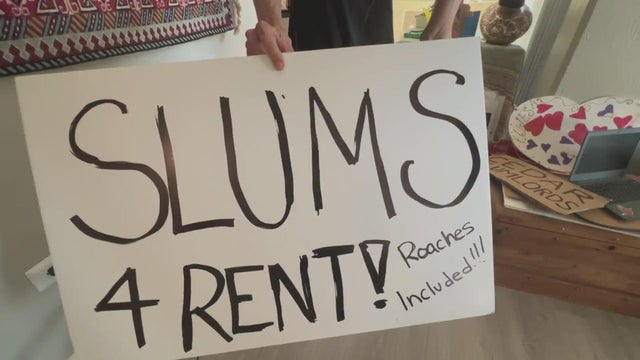 SLUMS
4 RENT!
Roaches
Included!!!
EDAR
UMLORDS